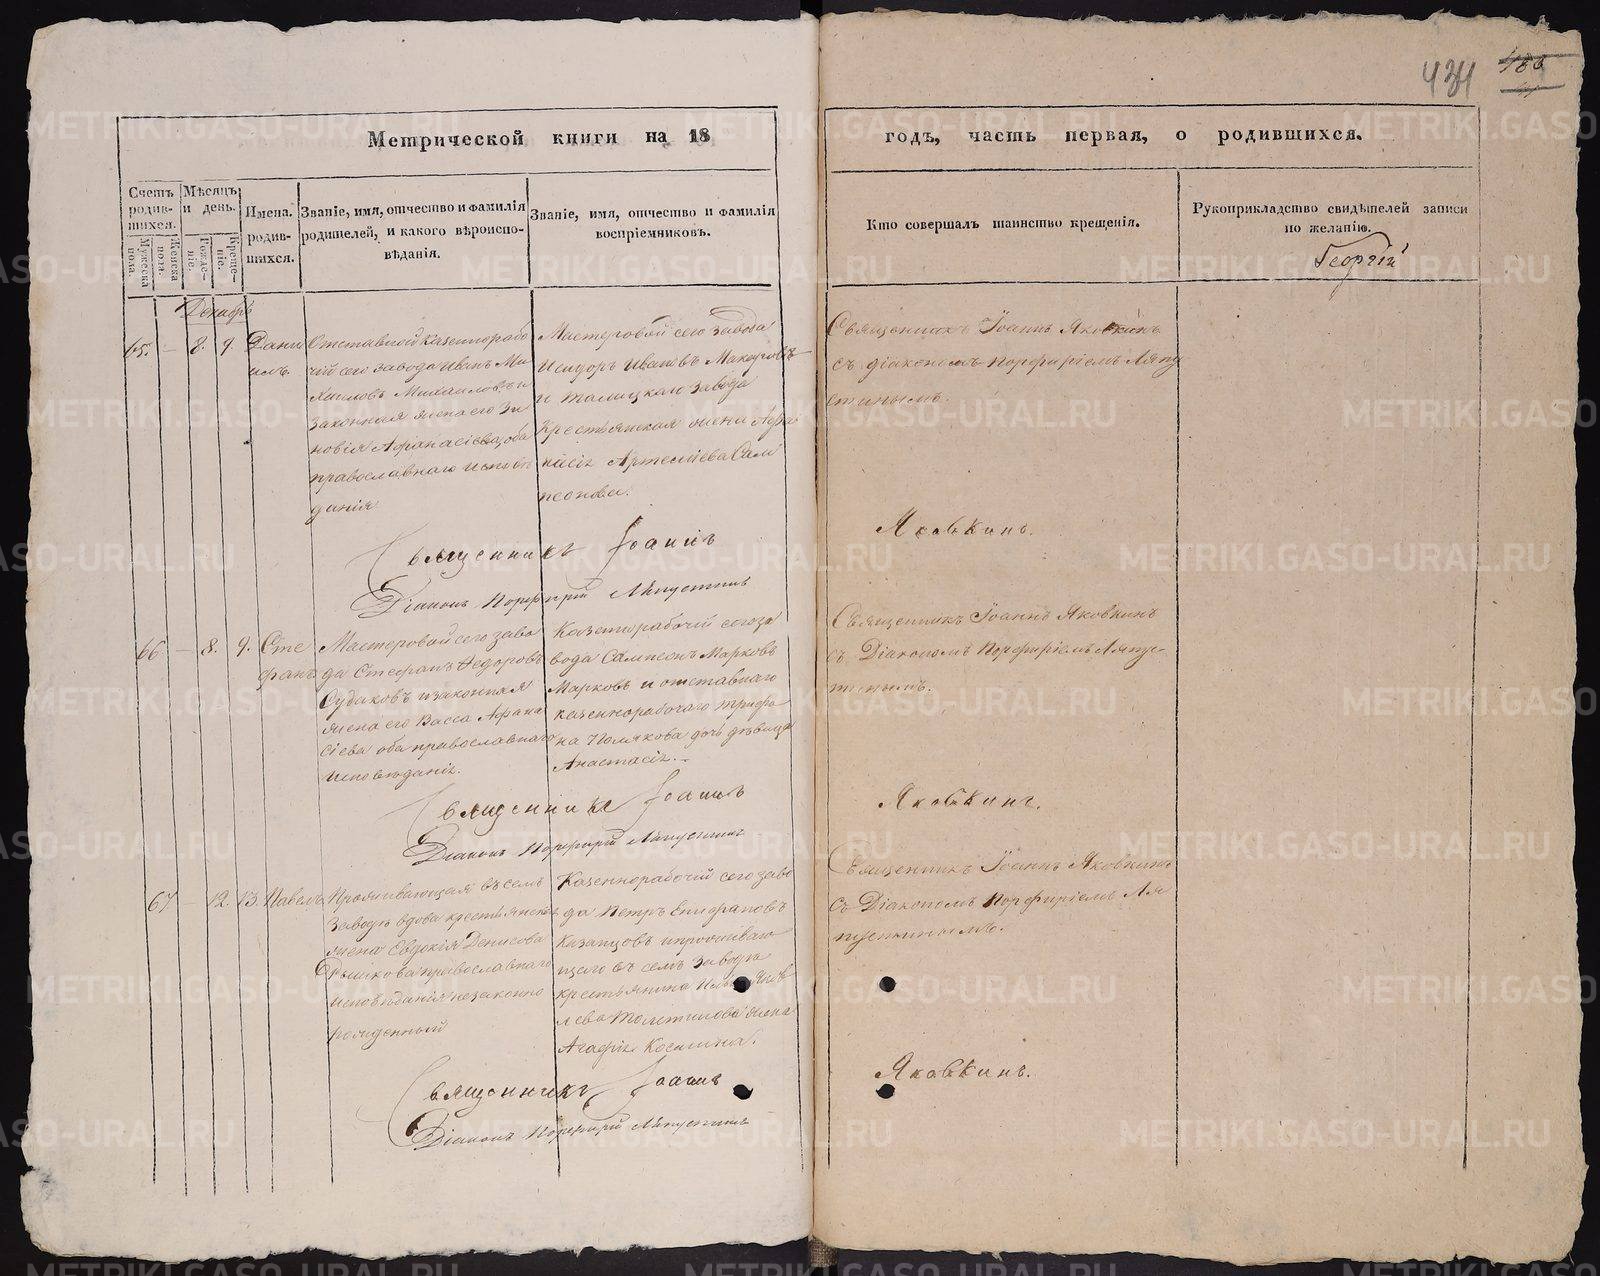 434
486
Метрической книги на 18
годъ, часть первая, о родившихся.
Счетъ родив-шихся.
Мужеска пола.
Женска пола.
Мѣсяцъ и день.
Рожде-ніе.
Креще-ніе.
Имена родив-шихся.
Званіе, имя, отчество и фамилія родителей, и какого вѣроиспо-вѣданія.
Званіе, имя, отчество и фамилія воспріемниковъ.
Кто совершалъ таинство крещенія.
Рукоприкладство свидѣтелей записи по желанію.
Георгій
Декабрь
65. — 8. 9.
Дани
илъ.
Отставной казеннорабо
чій сего завода Иванъ Ми
хаиловъ Михаиловъ и
законная жена его Зи
новія Афанасіева, оба
православнаго исповѣ
данія
Мастеровой сего завода
Исидоръ Ивановъ
и Талицкаго завода
крестьянская жена
Артеміева Сам
псонова.
Священникъ Іоаннъ Яковкинъ
съ діакономъ Порфиріемъ Ляпу
стинымъ.
Священникъ Іоаннъ
Яковкинъ.
Діаконъ Порфирій Ляпустинъ
66 — 8. 9.
Сте
фанъ
Мастеровой сего заво
да Стефанъ Ѳедоровъ
Судаковъ и законная
жена его Васса Афана
сіева оба православнаго
исповѣданія.
Казеннорабочій сего за
вода Сампсонъ Марковъ
Марковъ и отставнаго
казеннорабочаго Трифо
на Полякова дочь дѣвица
Анастасія.
Священникъ Іоаннъ Яковкинъ
съ Діакономъ Порфиріемъ Ляпус-
тинымъ.
Священникъ Іоаннъ
Яковкинъ.
Діаконъ Порфирій Ляпустинъ
67 — 12. 13.
Павелъ
Проживающая въ семъ
заводѣ вдова крестьянская
жена Евдокія Денисова
православнаго
исповѣданія незаконно
рожденный
Казеннорабочій сего заво
да Петръ Епифановъ
Казанцовъ и проживаю
щаго въ семъ заводѣ
крестьянина
жена
Агафія Косьмина.
Священникъ Іоаннъ Яковкинъ
съ Діакономъ Порфиріемъ Ля
пустинымъ.
Священникъ Іоаннъ
Яковкинъ.
Діаконъ Порфирій Ляпустинъ
METRIKI.GASO-URAL.RU